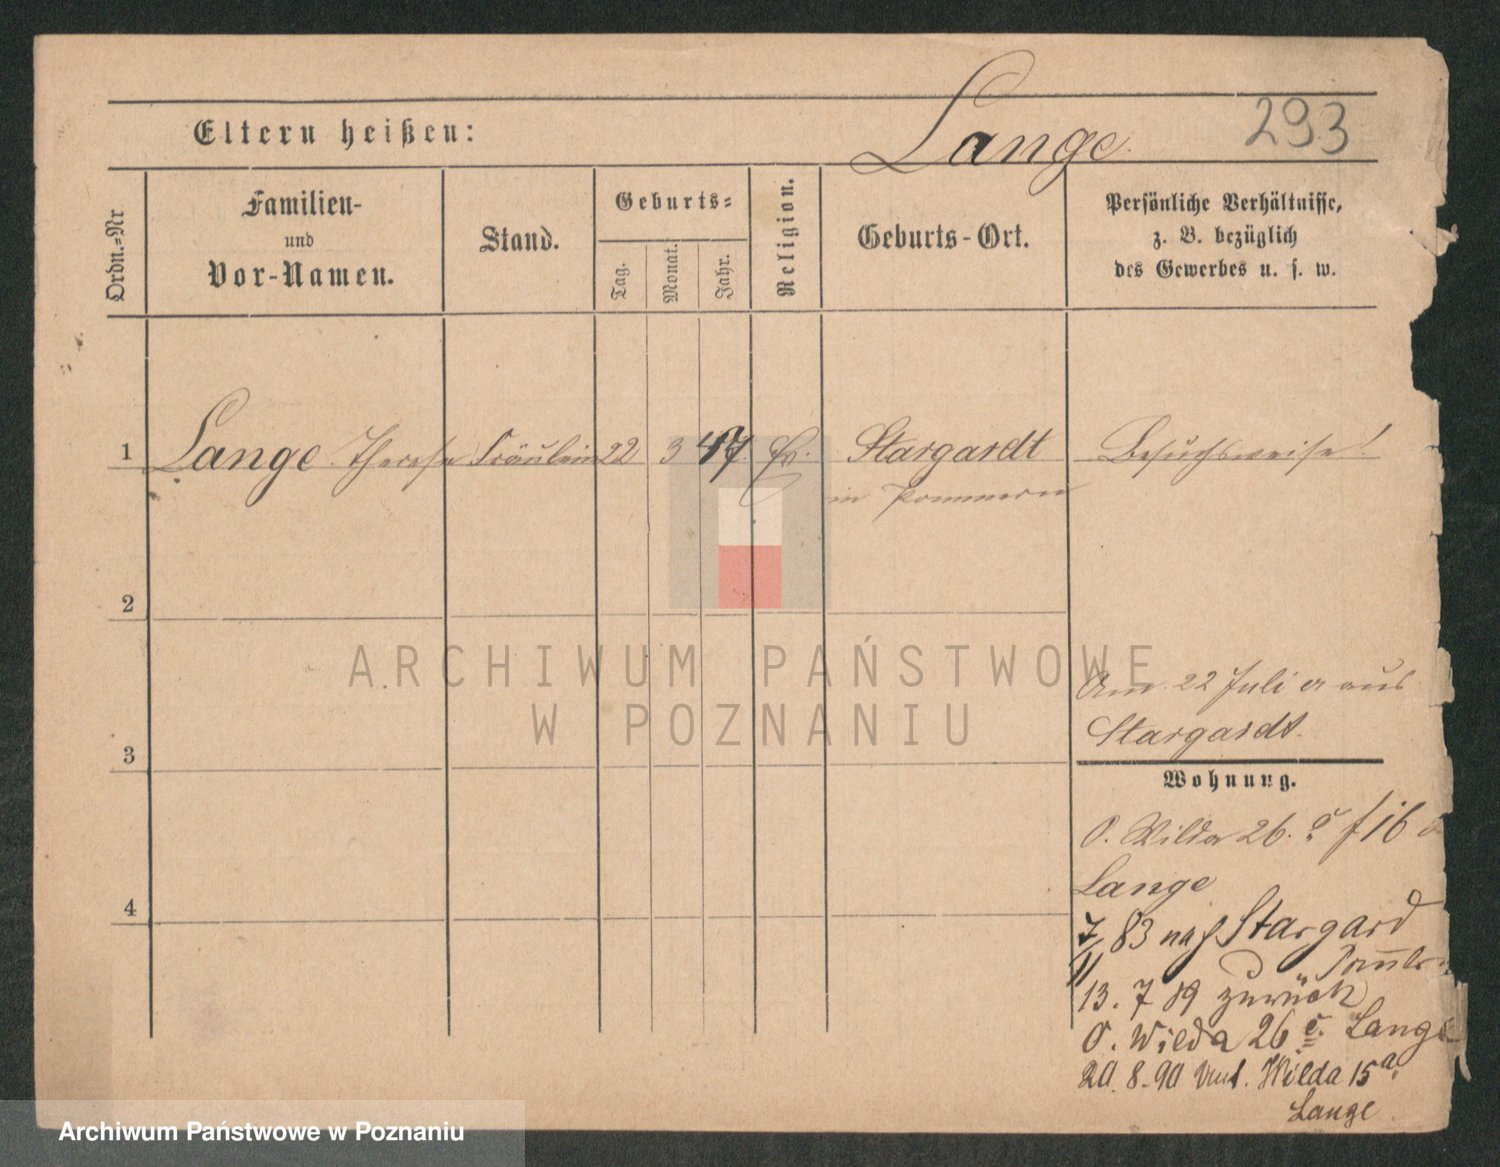 Lange
293
Eltern heißen:
Ordn.-Nr.
Familien-
und
Vor-Namen.
Stand.
Geburts-
Tag.
Monat.
Jahr.
Religion.
Geburts-Ort.
Persönliche Verhältnisse,
z. B. bezüglich
des Gewerbes u. s. w.
1
Lange Therese
Fräulein
22
3
47
Ev.
Stargardt
in Pommern
Besuchsweise!
2
3
4
Am 22 Juli cr aus
Stargardt.
Wohnung.
O. Wilda 26. c
Lange
7/11 83 nach Stargard
13. 7 89 zurück
O. Wilda 26 c. Lange
20. 8. 90 Wilda 15a
Lange
ARCHIWUM PAŃSTWOWE
W POZNANIU
Archiwum Państwowe w Poznaniu